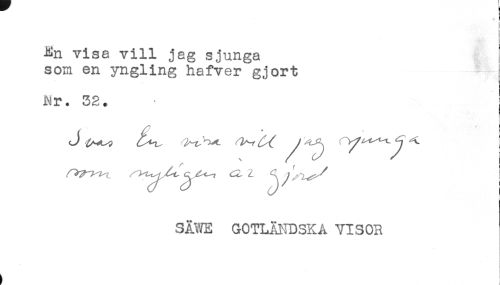 En visa vill jag sjunga
som en yngling hafver gjort
Nr. 32.
Svas En visa vill jag sjunga
som nyligen är gjord
SÄWE GOTLÄNDSKA VISOR